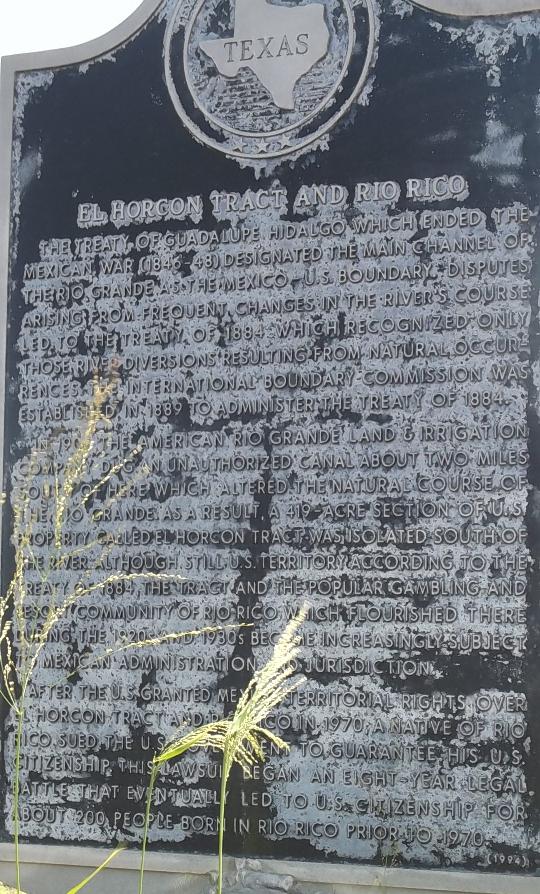 TEXAS
EL HORCON TRACT AND RIO RICO
THE TREATY OF GUADALUPE HIDALGO WHICH ENDED THE
MEXICAN WAR (1846-48) DESIGNATED THE MAIN CHANNEL OF
THE RIO GRANDE AS THE MEXICO - U.S. BOUNDARY. DISPUTES
ARISING FROM FREQUENT CHANGES IN THE RIVER'S COURSE
LED TO THE TREATY OF 1884 WHICH RECOGNIZED ONLY
THOSE RIVER DIVERSIONS RESULTING FROM NATURAL OCCUR-
RENCES. INTERNATIONAL BOUNDARY COMMISSION WAS
ESTABLISHED IN 1889 TO ADMINISTER THE TREATY OF 1884.
IN THE AMERICAN RIO GRANDE LAND & IRRIGATION
COMPANY DUG AN UNAUTHORIZED CANAL ABOUT TWO MILES
SOUTH OF HERE WHICH ALTERED THE NATURAL COURSE OF
THE RIO GRANDE. AS A RESULT, A 419-ACRE SECTION OF U.S.
PROPERTY CALLED EL HORCON TRACT WAS ISOLATED SOUTH OF
THE RIVER. ALTHOUGH STILL U.S. TERRITORY ACCORDING TO THE
TREATY OF 1884, THE TRACT AND THE POPULAR GAMBLING AND
COMMUNITY OF RIO RICO WHICH FLOURISHED THERE
DURING THE 1920s AND 1930s BECAME INCREASINGLY SUBJECT
TO MEXICAN ADMINISTRATION AND JURISDICTION.
AFTER THE U.S. GRANTED MEXICO TERRITORIAL RIGHTS OVER
EL HORCON TRACT AND RIO RICO IN 1970, A NATIVE OF RIO
RICO SUED THE U.S. TO GUARANTEE HIS U.S.
CITIZENSHIP. THIS LAWSUIT BEGAN AN EIGHT-YEAR LEGAL
BATTLE THAT EVENTUALLY LED TO U.S. CITIZENSHIP FOR
ABOUT 200 PEOPLE BORN IN RIO RICO PRIOR TO 1970.
(1994)